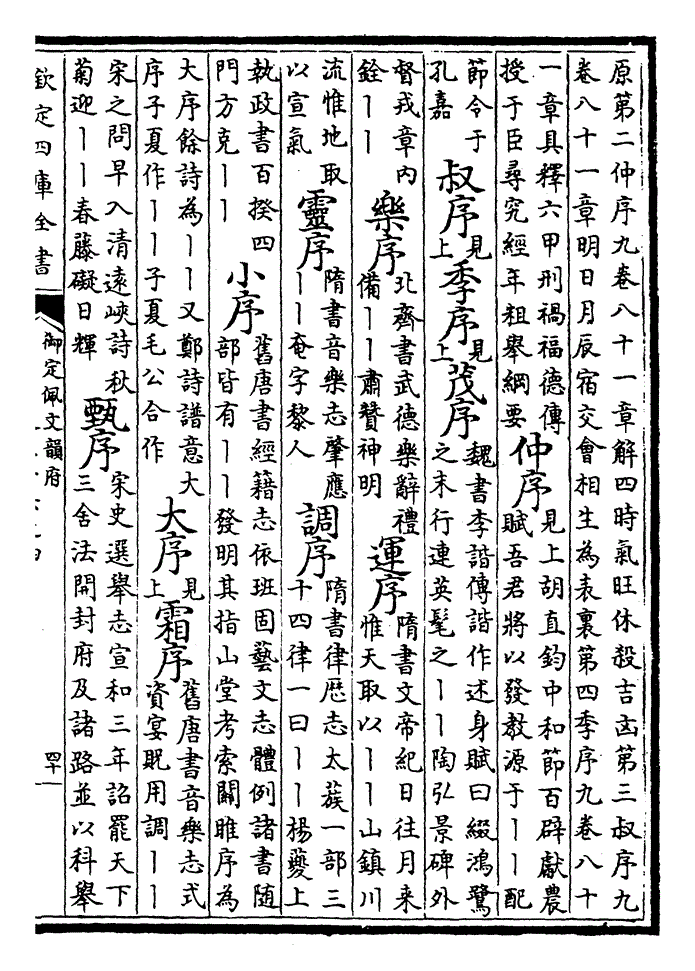 原第二仲序九卷八十一章解四時氣旺休殺吉凶第三叔序九
卷八十一章明日月辰宿交會相生為表裏第四季序九卷八十
一章具釋六甲刑禍福德傳
授于臣尋究經年粗舉綱要
仲序
見上胡直鈞中和節百辟獻農
賦吾君將以發教源于丨丨配
節令于
孔嘉
叔序
見上
季序
見上
茂序
魏書李諧傳諧作述身賦曰綴鴻鷺
之末行連英髦之丨丨陶弘景碑外
督戎章内
銓丨丨
樂序
北齊書武德樂辭禮
備丨丨肅贊神明
運序
隋書文帝紀日往月来
惟天取以丨丨山鎮川
流惟地取
以宣氣
靈序
隋書音樂志肇應
丨丨奄字黎人
調序
隋書律厯志太蔟一部三
十四律一曰丨丨楊夔上
執政書百揆四
門方克丨丨
小序
舊唐書經籍志依班固藝文志體例諸書随
部皆有丨丨發明其指山堂考索關雎序為
大序餘詩為丨丨又鄭詩譜意大
序子夏作丨丨子夏毛公合作
大序
見上
霜序
舊唐書音樂志式
資宴眖用調丨丨
宋之問早入清遠峽詩秋
菊迎丨丨春藤礙日輝
甄序
宋史選舉志宣和三年詔罷天下
三舍法開封府及諸路並以科舉
欽定四庫全書
御定佩文韻府
四十一